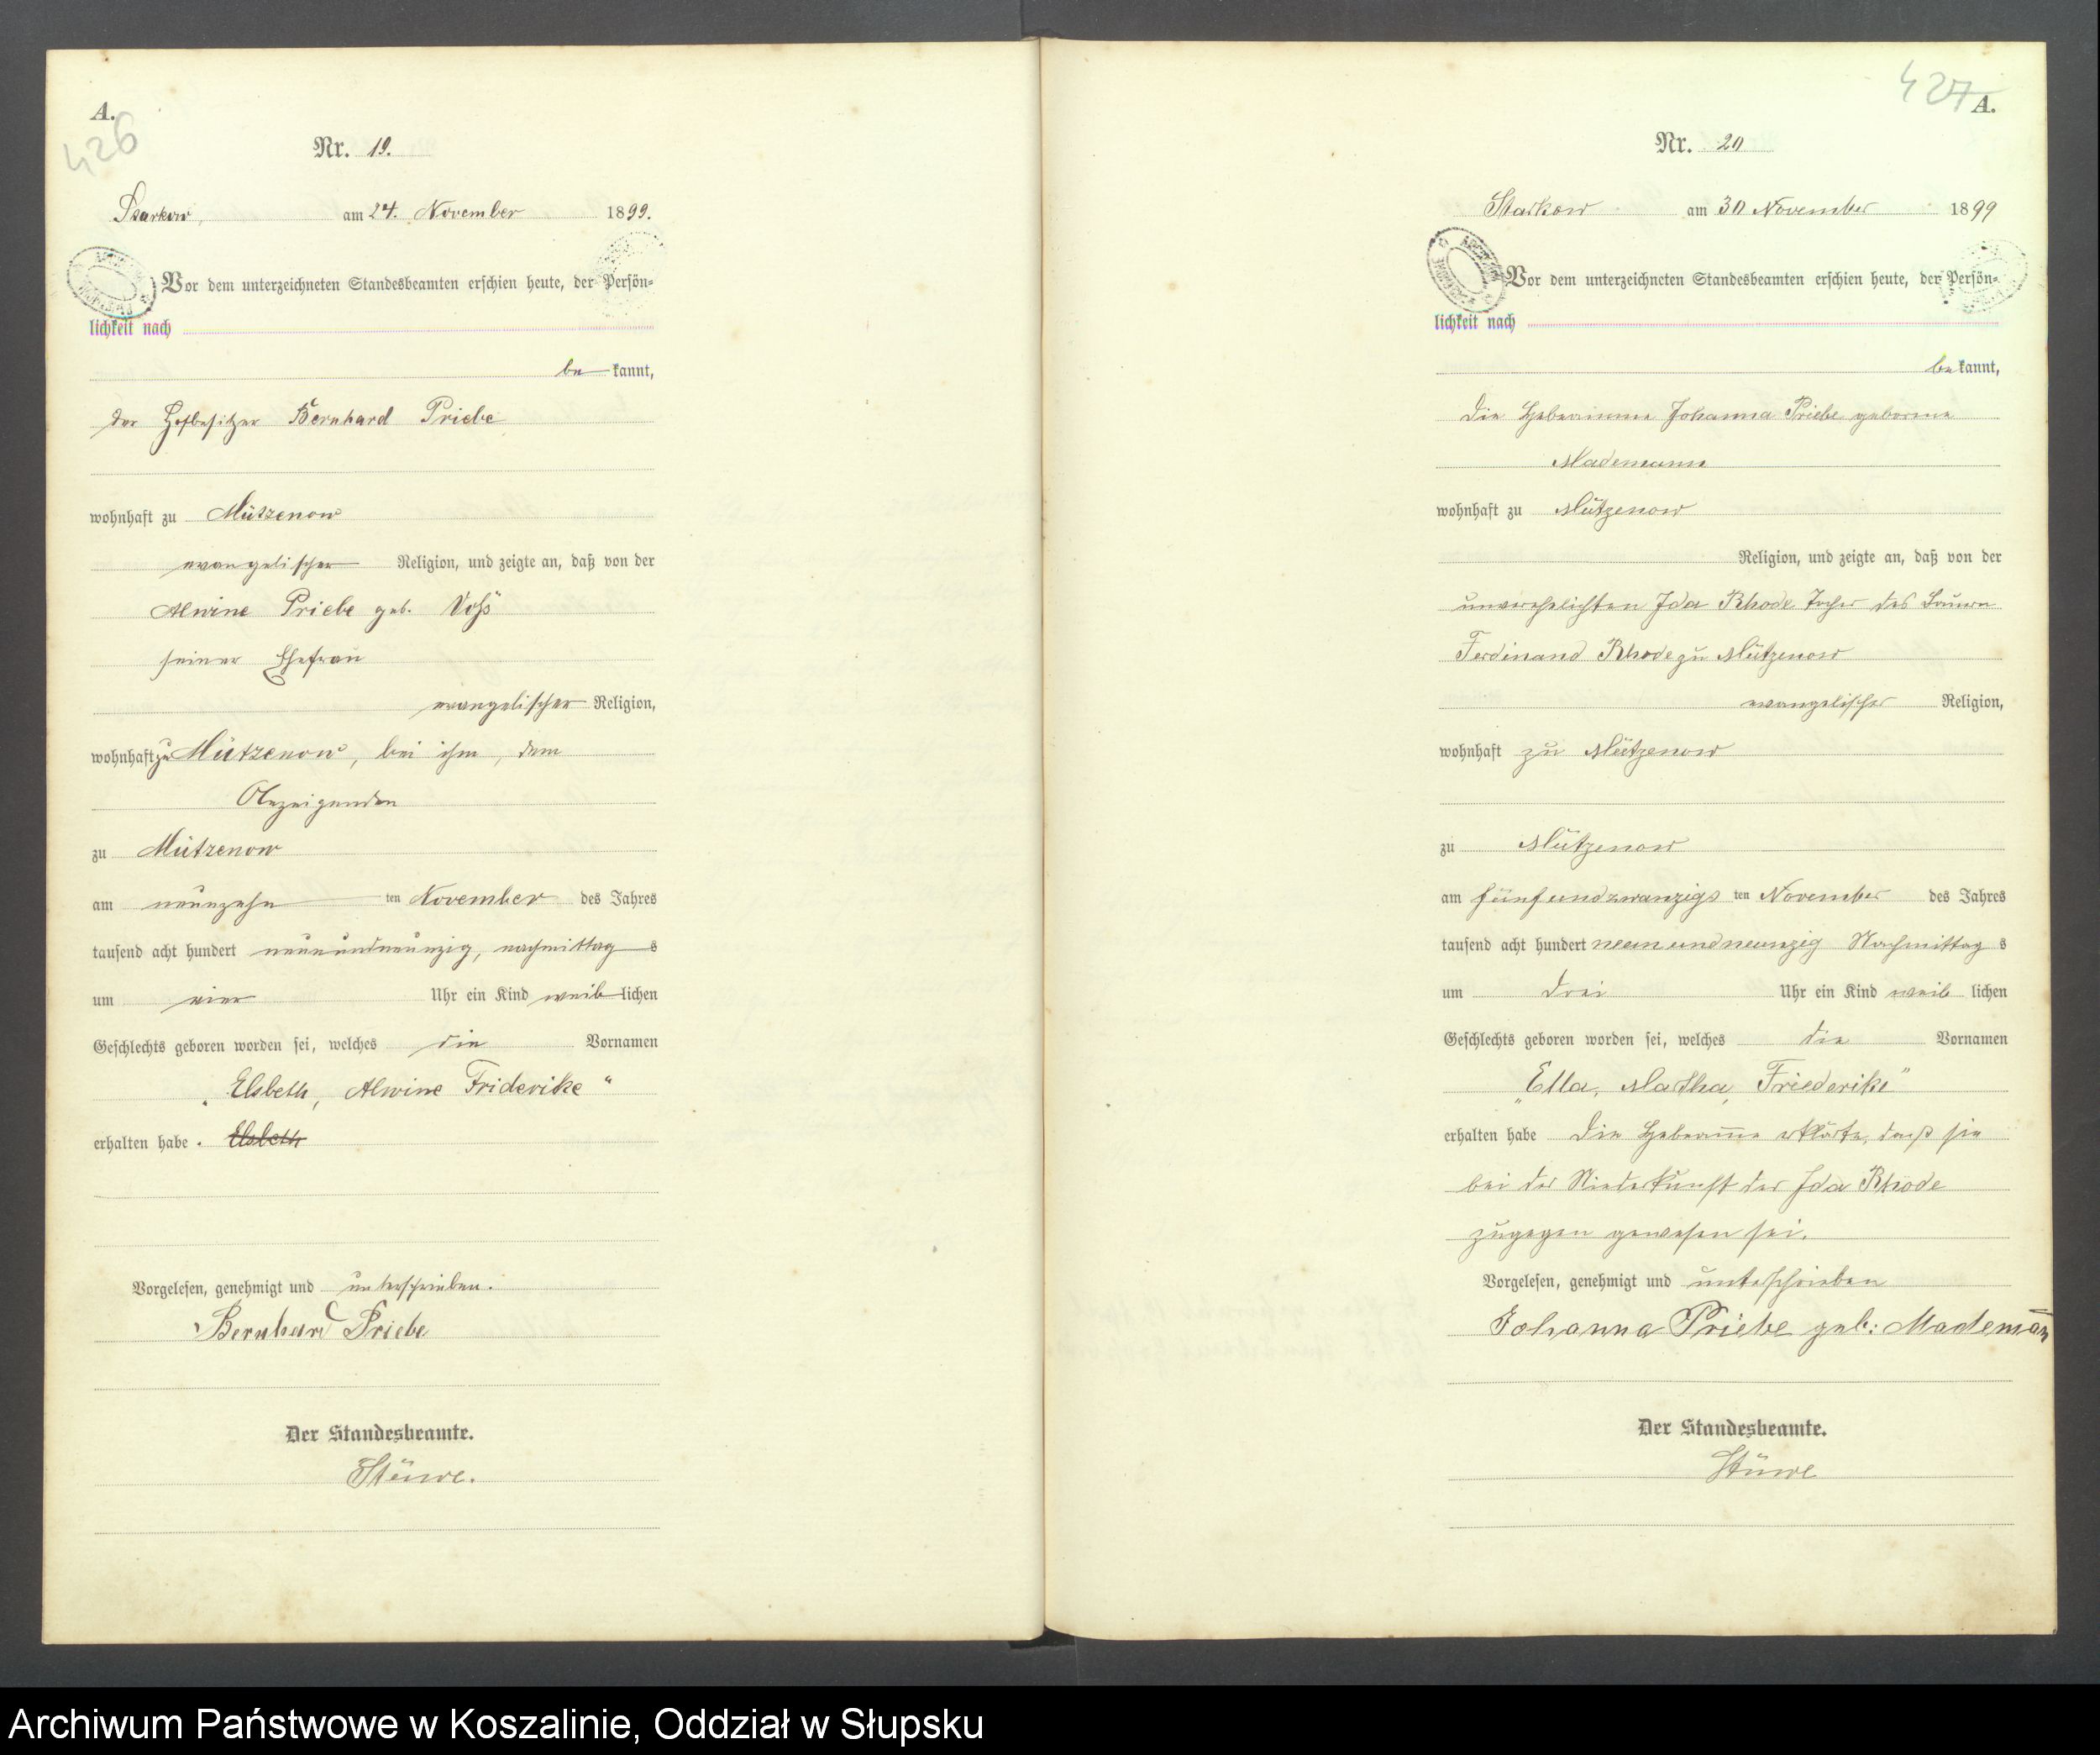 A.
426
Nr. 19.
Starkow, am 24. November 1899.
Vor dem unterzeichneten Standesbeamten erschien heute, der Persön-
lichkeit nach
be kannt,
der Hofbesitzer Bernhard Priebe
wohnhaft zu Mützenow
evangelischer Religion, und zeigte an, daß von der
Alwine Priebe geb. Voß
seiner Ehefrau
evangelischer Religion,
wohnhaft zu Mützenow, bei ihm, dem
Anzeigenden
zu Mützenow
am neunzehn ten November des Jahres
tausend acht hundert neunundneunzig, nachmittag s
um vier Uhr ein Kind weib lichen
Geschlechts geboren worden sei, welches die Vornamen
„Elsbeth, Alwine Friderike“
erhalten habe. Elsbeth
Vorgelesen, genehmigt und unterschrieben.
Bernhard Priebe
Der Standesbeamte.
Stüwe.
427
A.
Nr. 20
Starkow am 30 November 1899
Vor dem unterzeichneten Standesbeamten erschien heute, der Persön-
lichkeit nach
be kannt,
die Hebeamme Johanna Priebe geborene
Mademann
wohnhaft zu Mützenow
Religion, und zeigte an, daß von der
unverehelichten Ida Rhode Tochter des Bauern
Ferdinand Rhode zu Mützenow
evangelischer Religion,
wohnhaft zu Mützenow
zu Mützenow
am fünfundzwanzigs ten November des Jahres
tausend acht hundert neunundneunzig Nachmittag s
um drei Uhr ein Kind weib lichen
Geschlechts geboren worden sei, welches die Vornamen
„Ella, Martha, Friederike“
erhalten habe Die Hebeamme erklärte, daß sie
bei der Niederkunft der Ida Rhode
zugegen gewesen sei.
Vorgelesen, genehmigt und unterschrieben
Johanna Priebe geb: Mademan̄
Der Standesbeamte.
Stüwe
Archiwum Państwowe w Koszalinie, Oddział w Słupsku